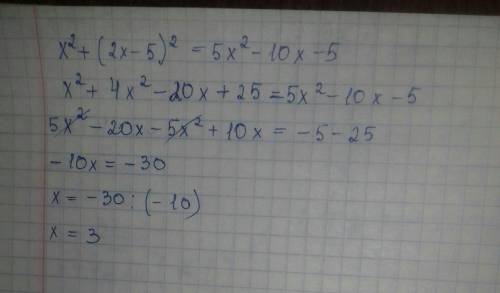 x² + (2x - 5)² = 5x² - 10x - 5
x² + 4x² - 20x + 25 = 5x² - 10x - 5
5x² - 20x - 5x² + 10x = -5 - 25
-10x = -30
x = -30 : (-10)
x = 3